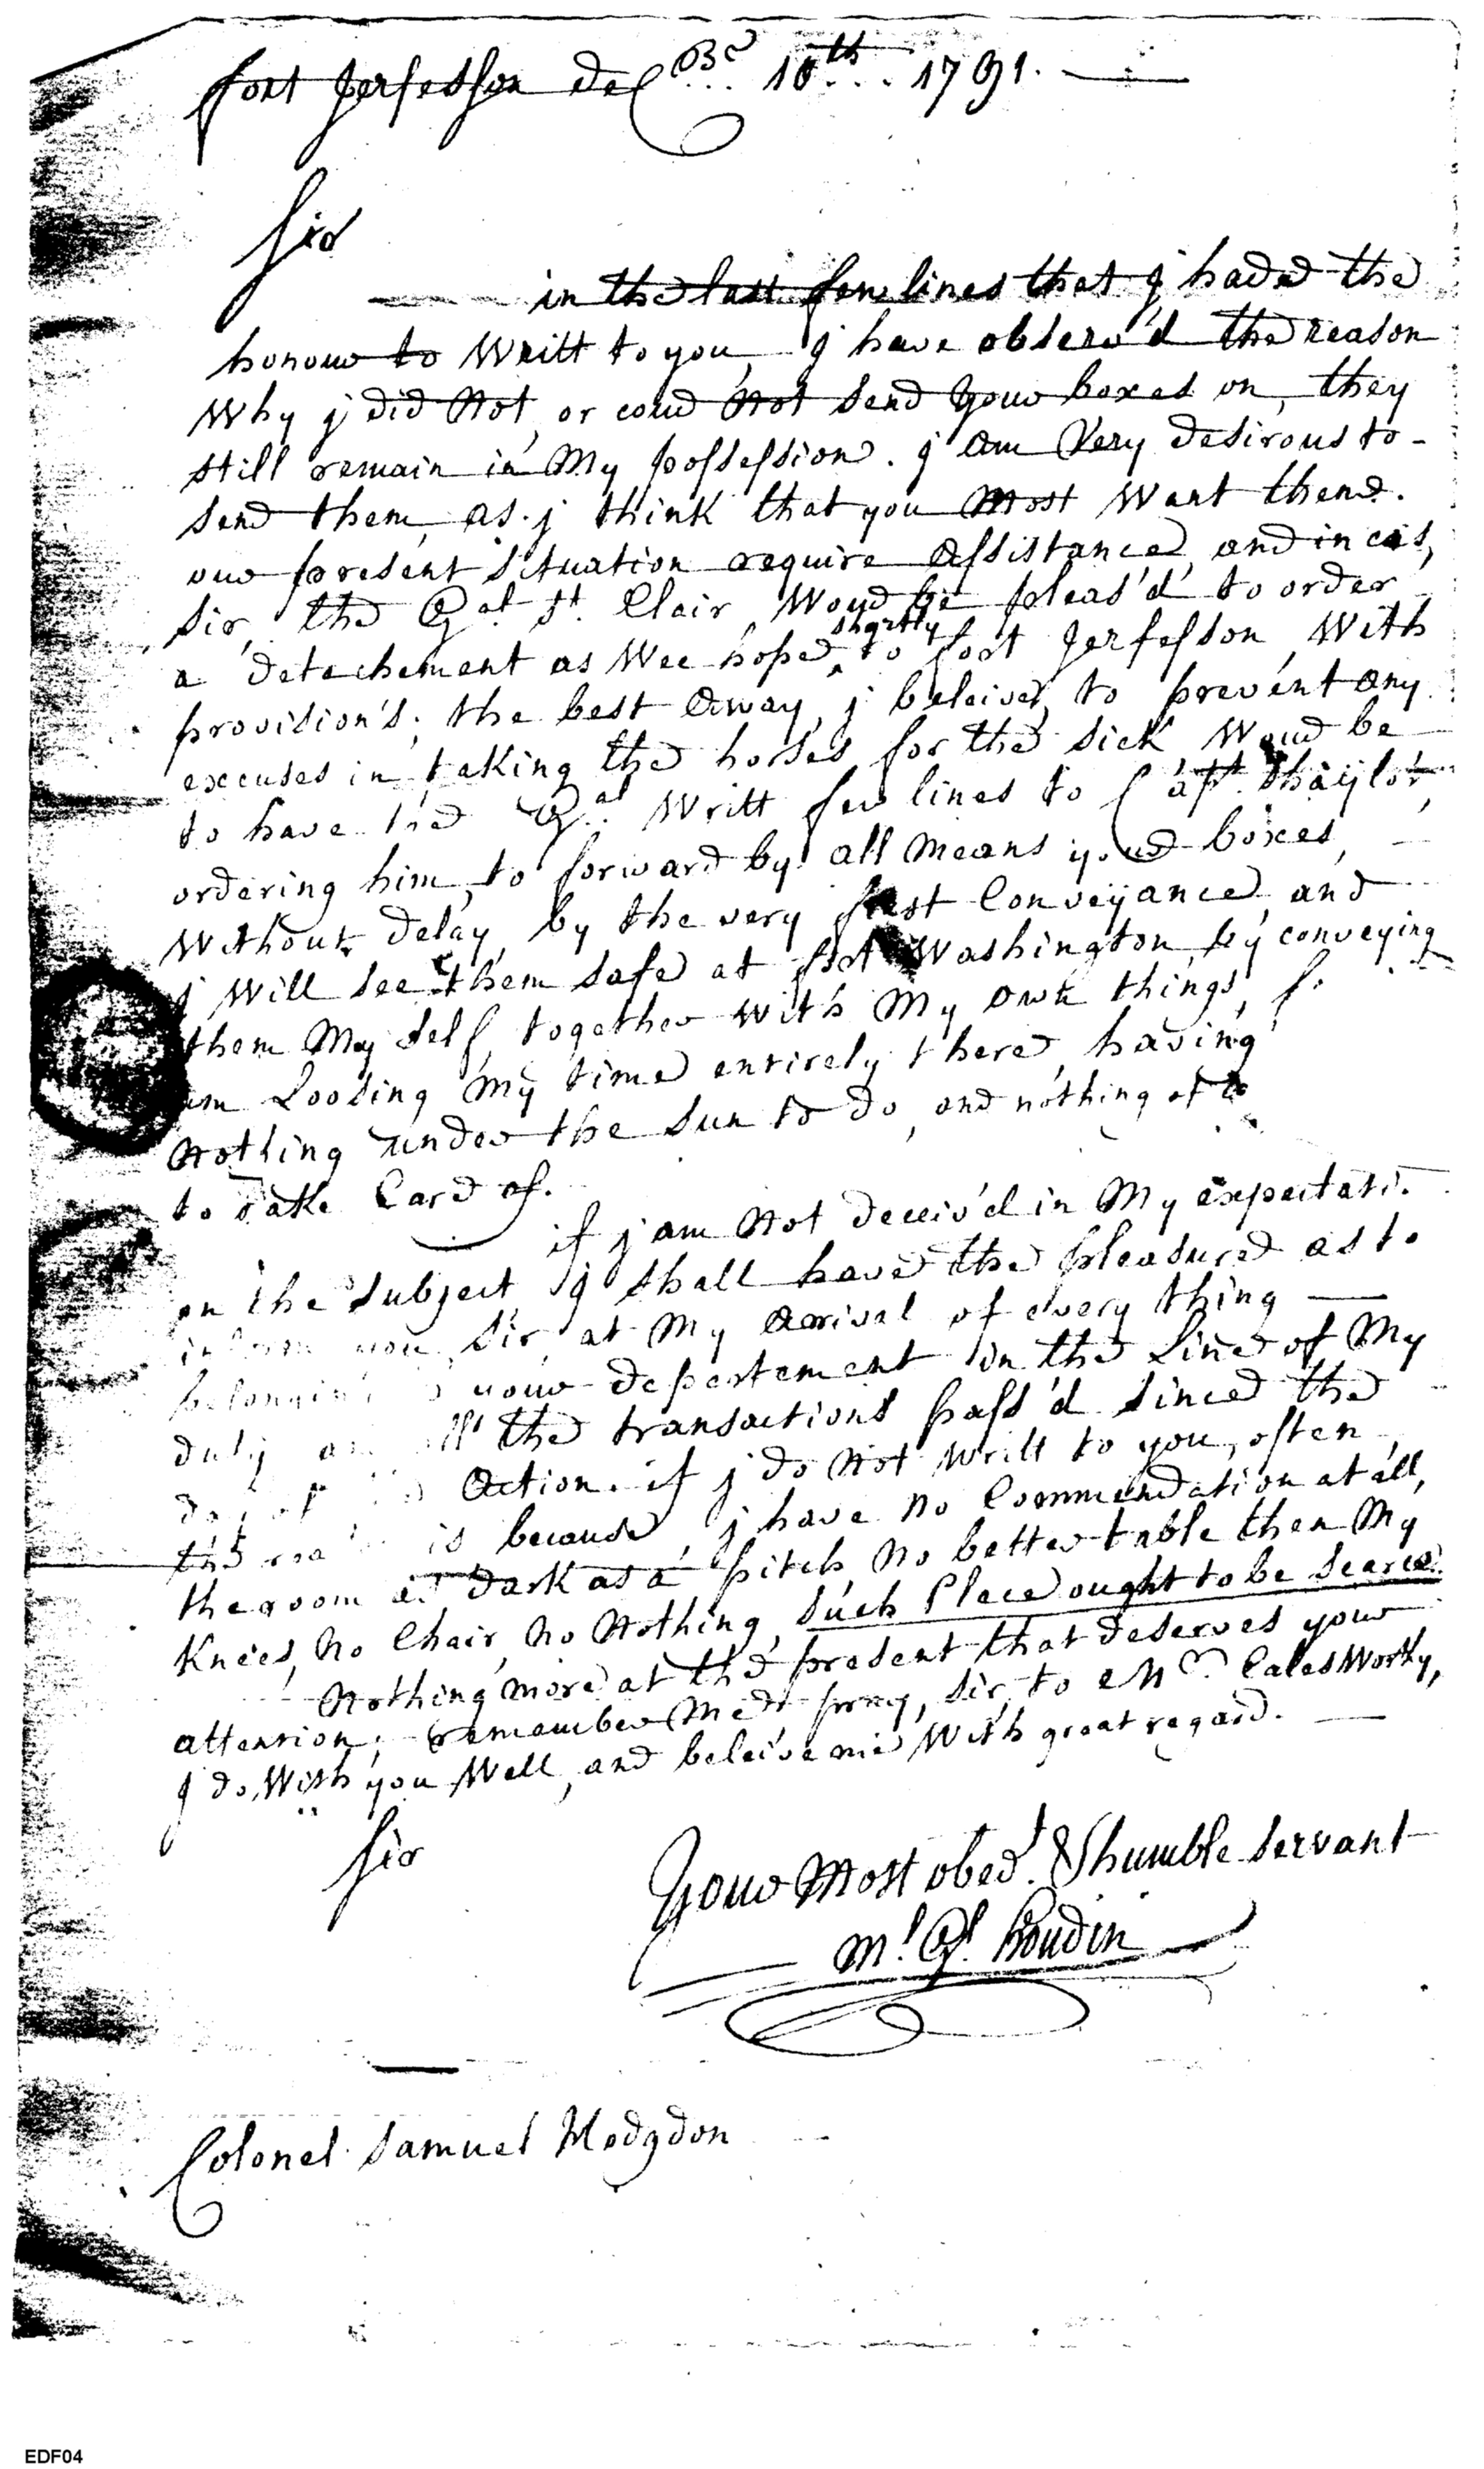 fort Jerfesson decbre 10th 1791.
Sir
in the last few lines that j haded the
honour to Writt to you, j have observ'd the reason
Why j did Not, or coud Not send your boxes on, they
still remain in My possession. j am Very desirous to
send them, as j think that you Most Want them.
our present situation require assistance, and in cas,
sir, the Gal St. Clair, Woud be pleas'd to order
a detachement as Wee hope, shortly to fort Jerfesson With
provision's; the best away, j beleive, to prevent any
excuses in taking the horses for the sick Woud be
to have the Gal Writt few lines to Capt. Thaylor,
ordering him, to forward by all Means your boxes,
Without delay, by the very first Conveyance, and
j Will see them safe at fort Washington, by conveying
them My self, together With My own things, j
am Loosing My time entirely there, having
Nothing under the sun to do, and nothing
to Take Care of.
if j am Not deceiv'd in My expectati.
on the subject j shall have the pleasure as to
inform you, Sir, at My Arrival of every thing
belonging your departement in the Line of My
duty all the transactions pass'd since the
day of Action. if j do Not Writt to you, often
the is because, j have no Commendation at all,
the room is dark as a pitch, No better table then My
Knees, No Chair, No Nothing, such Place ought to be scarce.
Nothing more at the present that deserves your
attention; remamber Me pray, Sir, to Mr. CalesWorthy,
j do, Wish you Well, and beleive me With great regard.
Sir
Your Most obed.t & humble servant
Ml. Gl. Houdin
Colonel Samuel Hodgdon
EDF04